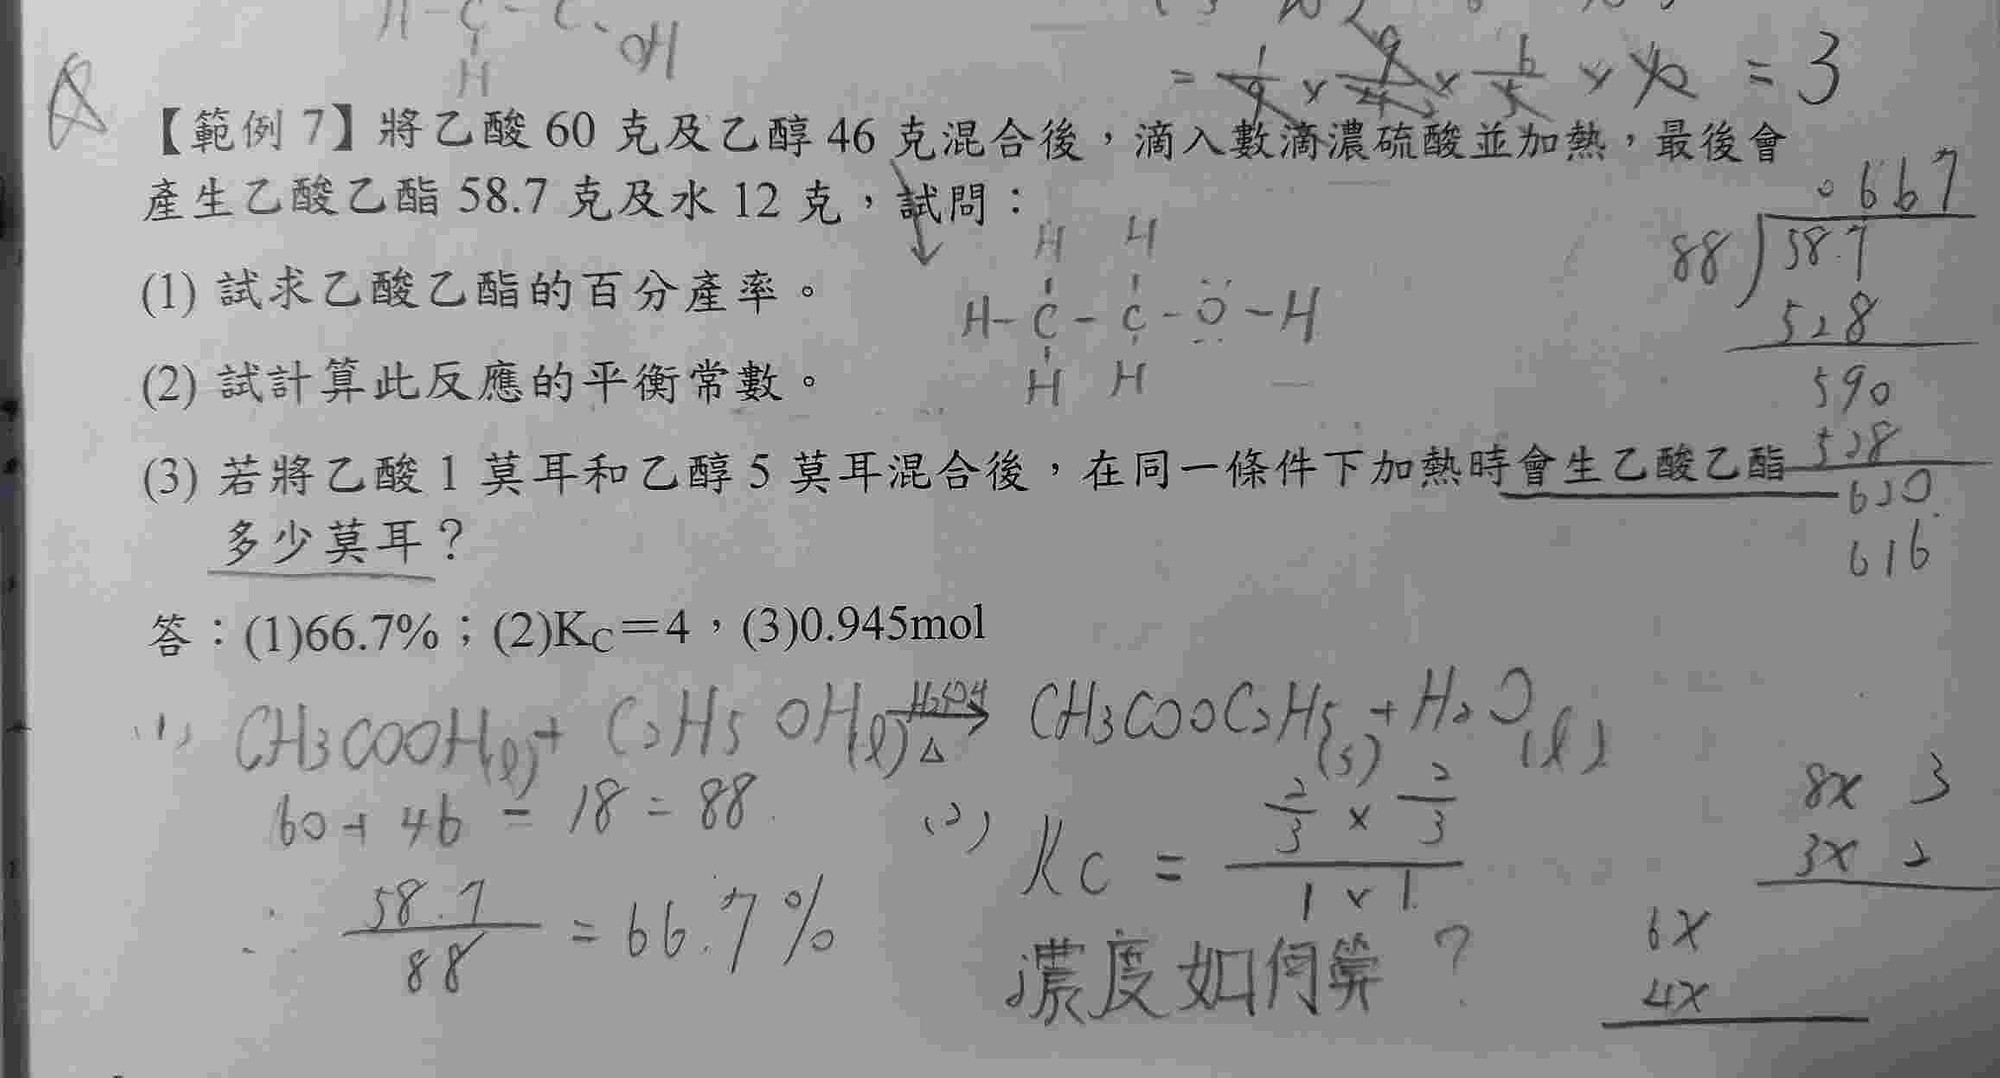 H-C-C-OH
H
= 1/9 × 9/4 × 6/5 × 10 = 3
【範例 7】將乙酸 60 克及乙醇 46 克混合後，滴入數滴濃硫酸並加熱，最後會
產生乙酸乙酯 58.7 克及水 12 克，試問：
(1) 試求乙酸乙酯的百分產率。
(2) 試計算此反應的平衡常數。
(3) 若將乙酸 1 莫耳和乙醇 5 莫耳混合後，在同一條件下加熱時會生乙酸乙酯
多少莫耳？
答：(1)66.7%；(2)KC＝4，(3)0.945mol
H H
H-C-C-O-H
H H
0667
88 58.7
528
590
528
620
616
(1) CH3COOH(l) + C2H5OH(l) H2SO4 △ → CH3COOC2H5(s) + H2O(l)
60 + 46 - 18 = 88
∴ 58.7/88 = 66.7%
(2) KC = 2/3 × 2/3 / 1 × 1
濃度如何算？
8x 3
3x 2
6x
4x